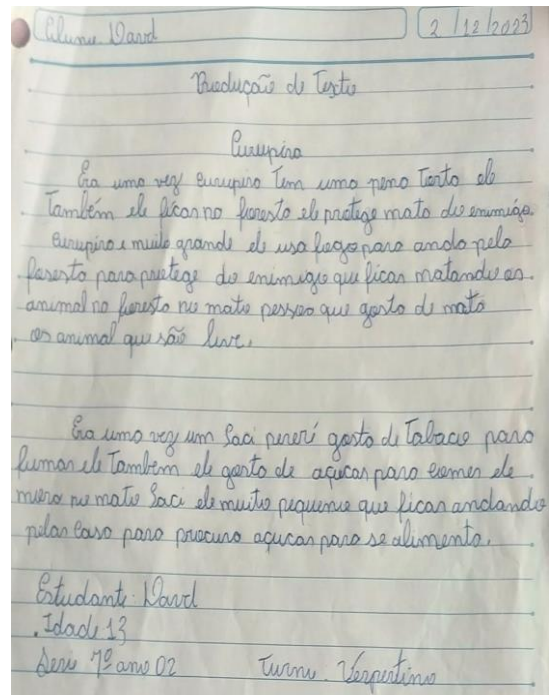 Aluno David 2/12/2023
Produção de Texto
Curupira
Era uma vez curupira Tem uma perna Torta ele
Também ele ficar na floresta ele protege mata do enimigo.
Curupira e muito grande ele usa fogo para anda pela
faresta para protege do enimigo que ficar matando os
animal na floresta no mato pessoa que gosta de mata
os animal que são livre.
Era uma vez um Saci pererí gosta de Tabaco para
fumar ele Também ele gosta de açucar para comer ele
mora no mato Saci ele muito pequeno que ficar andando
pelas casa para procura açucar para se alimenta.
Estudante: David
Idade 13
Serie 7º ano 02 Turno. Vespertino